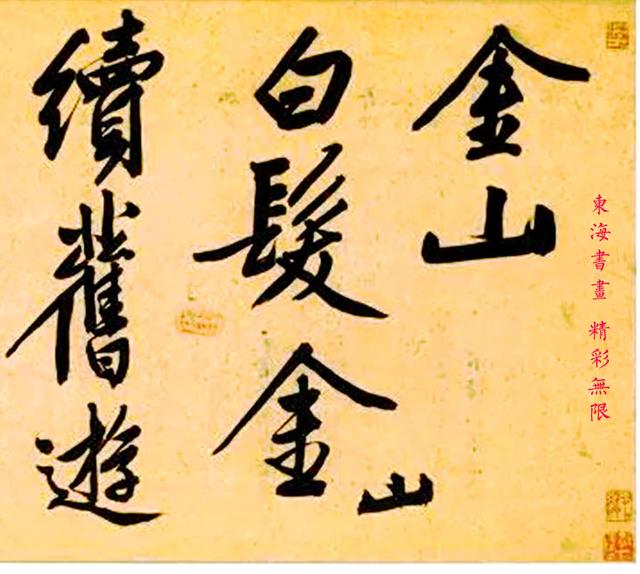 金山
白髮金山
續舊遊
東海書畫 精彩無限